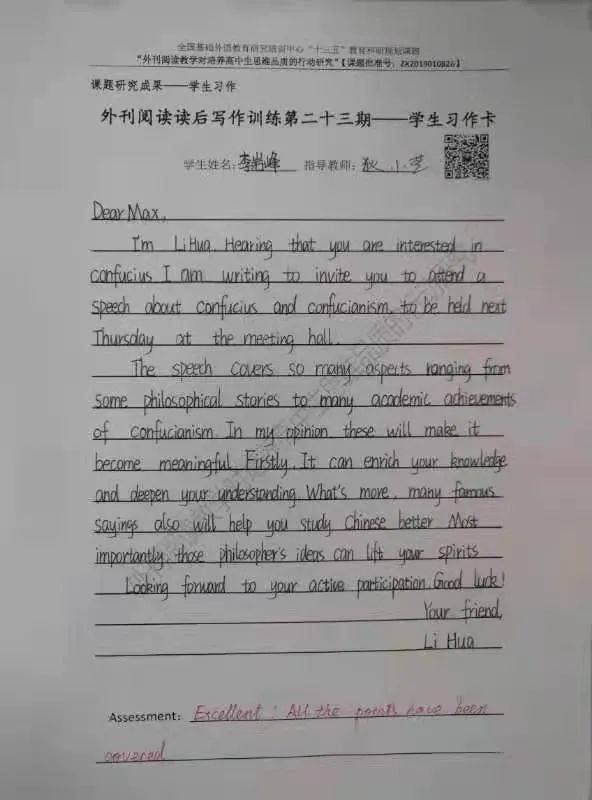 全国基础外语教育研究培训中心“十三五”教育科研规划课题
“外刊阅读教学对培养高中生思维品质的行动研究”【课题批准号：ZX2019010826】
课题研究成果——学生习作
外刊阅读读后写作训练第二十三期——学生习作卡
学生姓名：李 峰 指导教师：狄小艺
Dear Max,
I'm Li Hua. Hearing that you are interested in
confucius I am writing to invite you to attend a
speech about confucius and confucianism, to be held next
Thursday at the meeting hall.
The speech covers so many asperts ranging from
some philosophical stories to many academic achievements
of confucianism. In my opinion these will make it
become meaningful. Firstly, It can enrich your knowledge
and deepen your understanding. What's more, many famous
sayings also will help you study Chinese better Most
importantly, those philosopher's ideas can lift your spirits
Looking forward to your active participation. Good luck!
Your friend,
Li Hua
Assessment: Excellent! All the points have been
covered